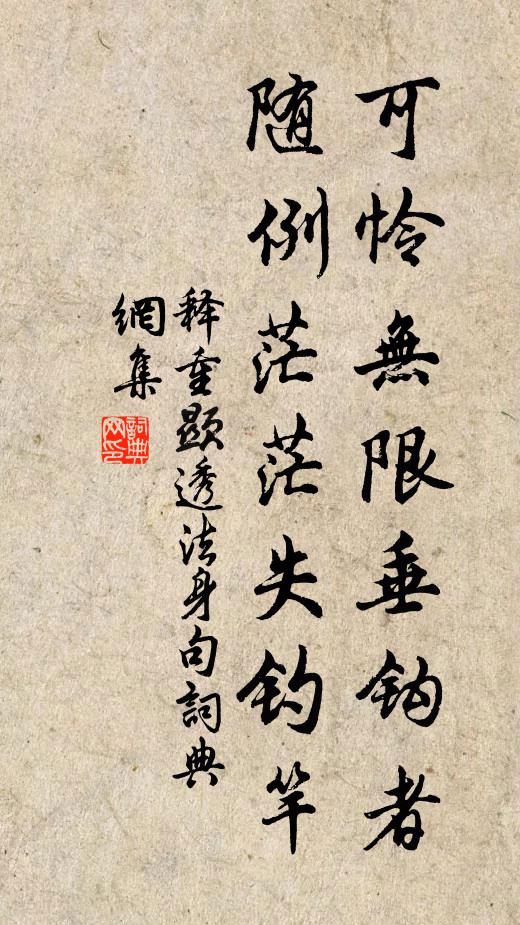 可怜無限垂钩者
随例茫茫失钓竿
释重顕透法身句詞典
網集
詞典
网印